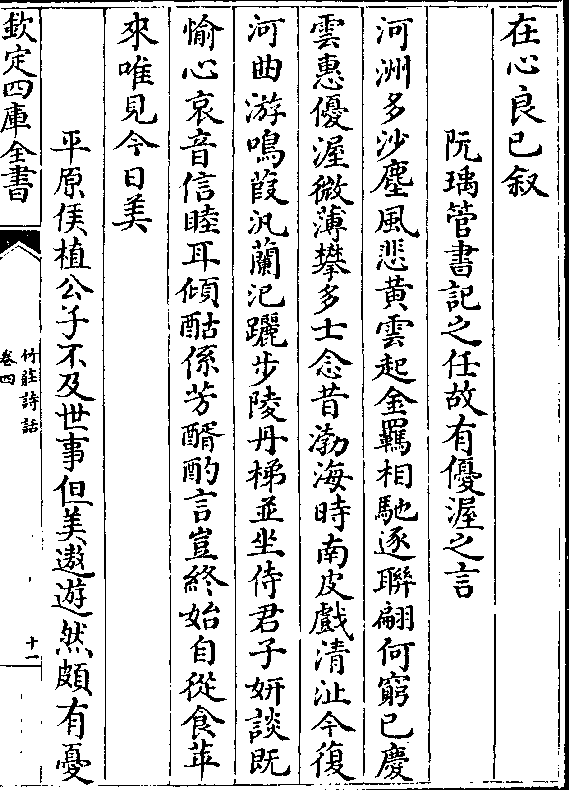 在心良已叙
阮瑀管書記之任故有優渥之言
河洲多沙塵風悲黄雲起金羈相馳逐聯翩何窮已慶
雲惠優渥微薄攀多士念昔渤海時南皮戲清沚今復
河曲游鳴葭汎蘭汜躧步陵丹梯並坐侍君子妍談既
愉心哀音信睦耳傾酤係芳醑酌言豈終始自從食苹
來唯見今日美
平原侯植公子不及世事但美遨遊然頗有憂
欽定四庫全書
竹莊詩話
卷四
十一